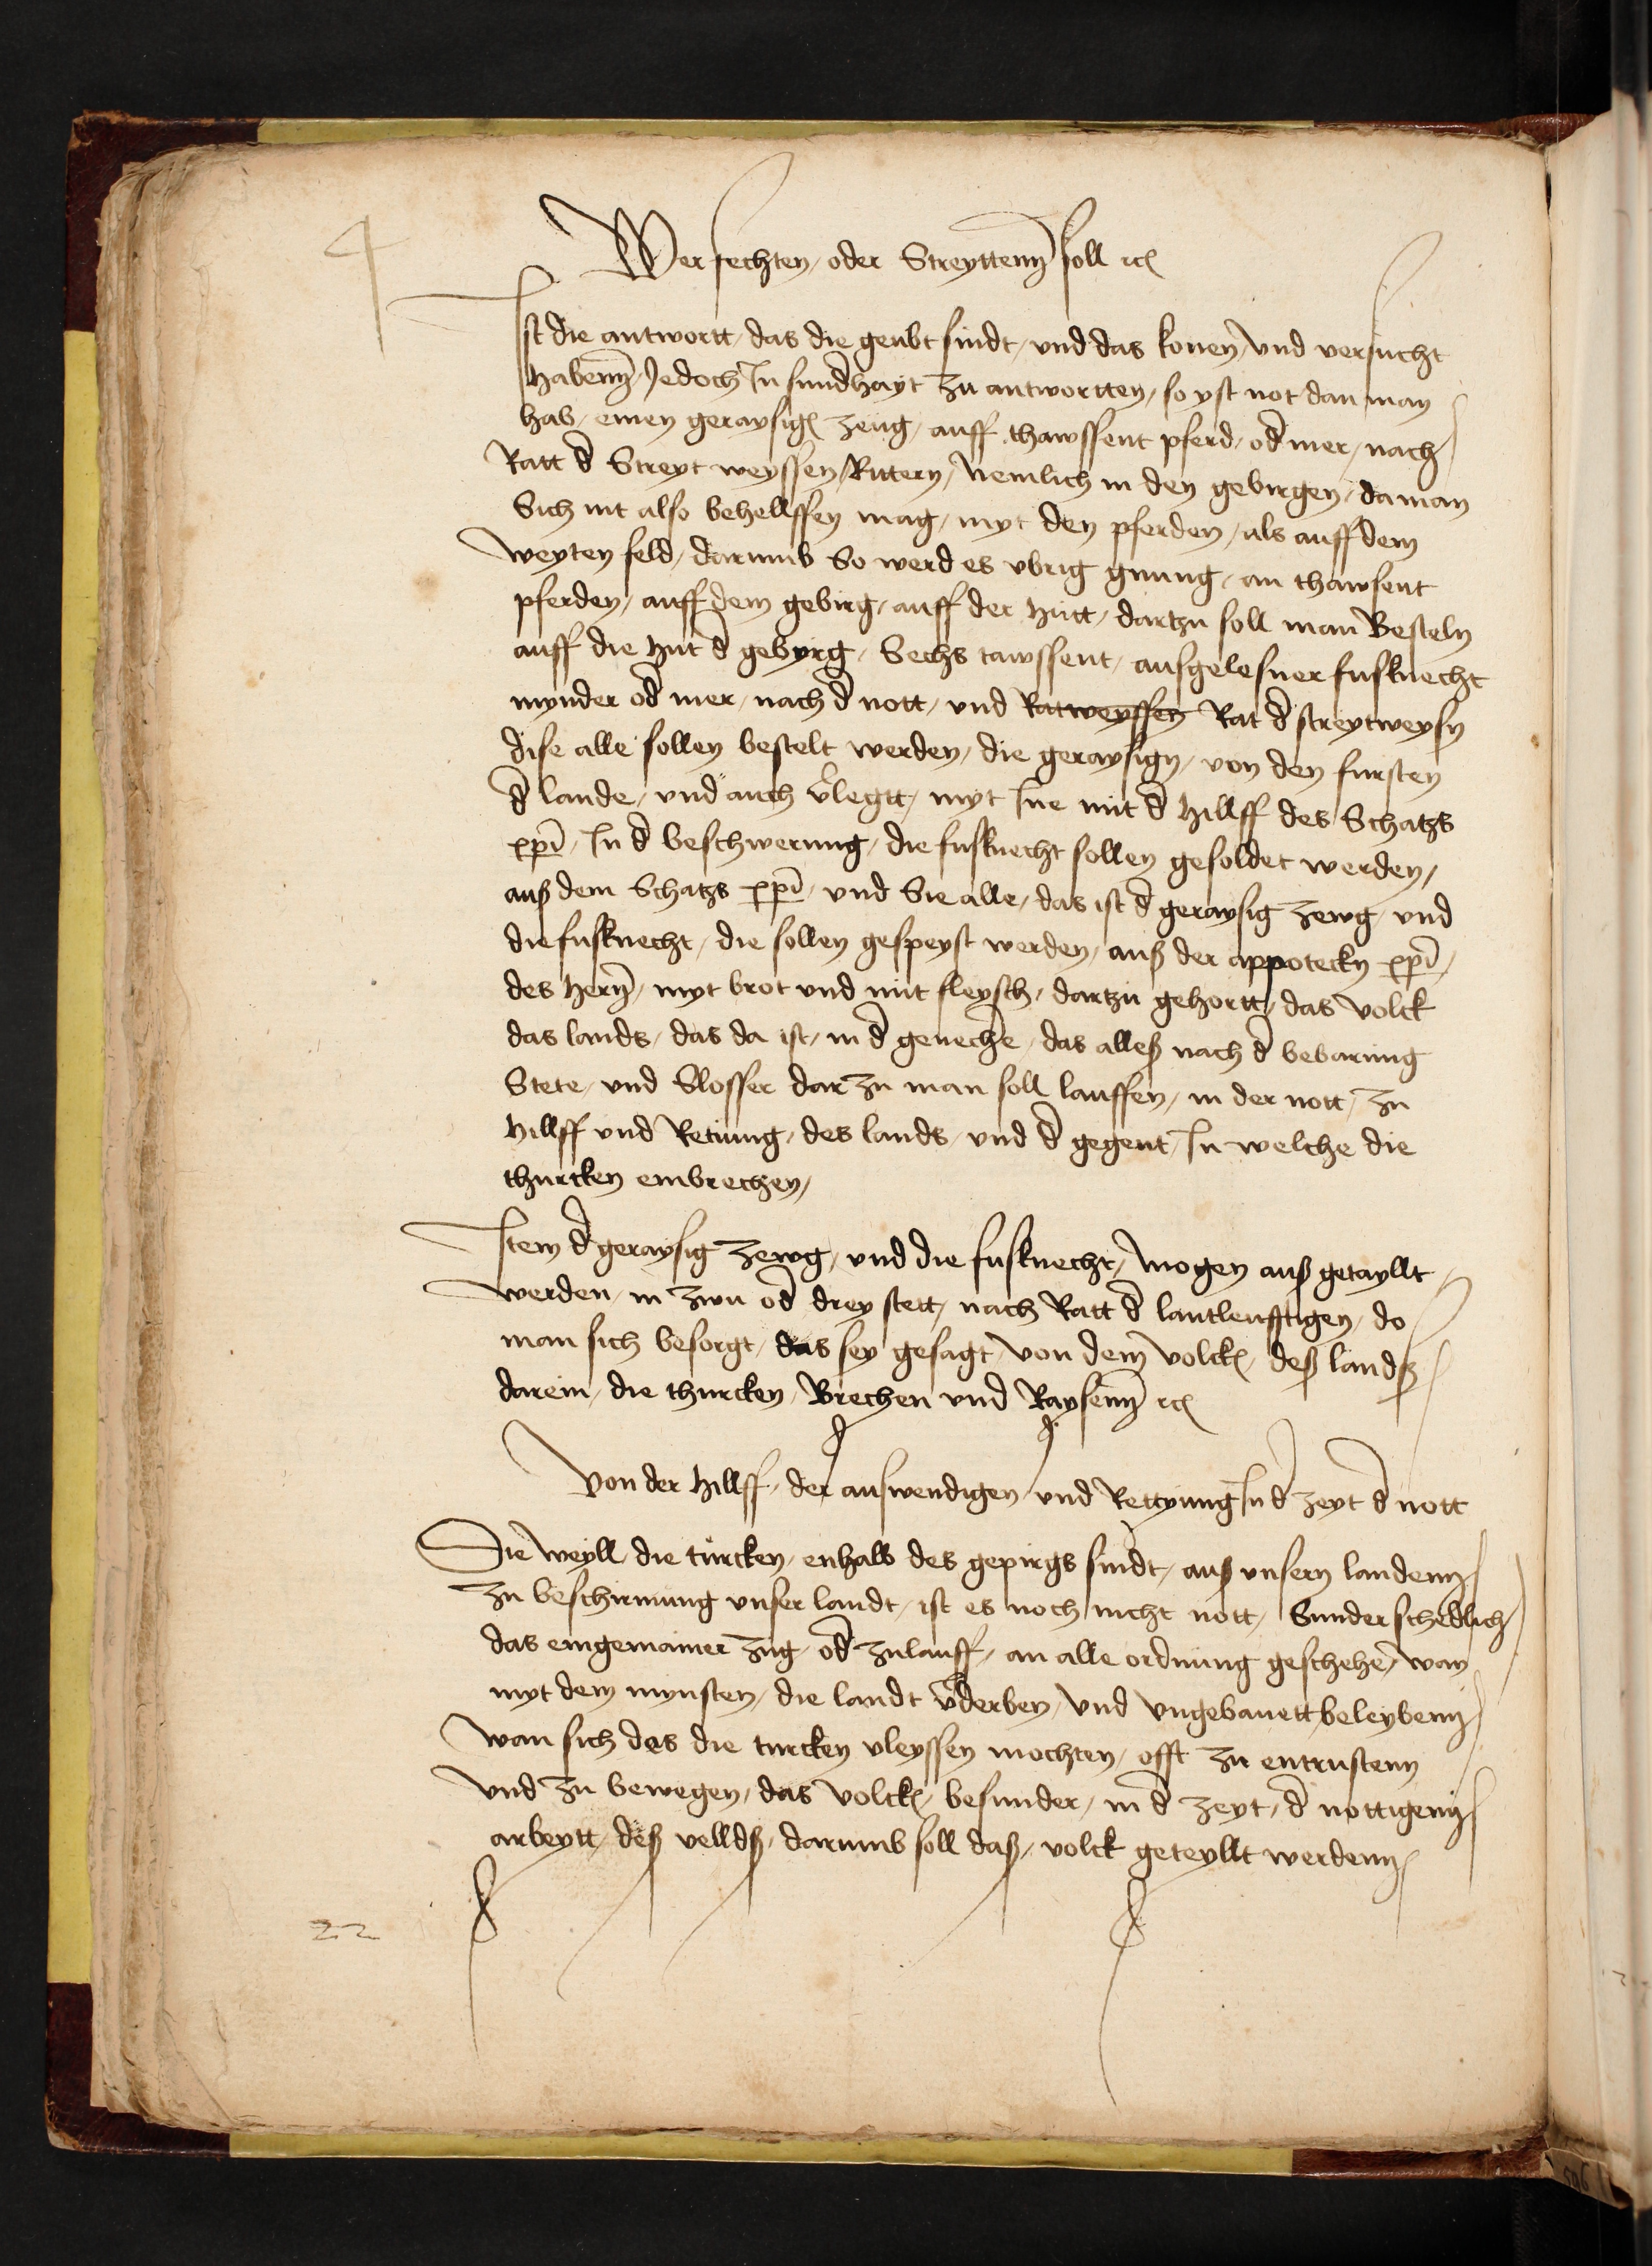 4
Wer fechten / oder Streyttenn soll rc
Ist die antwortt / das die geubt sindt / und das konen / und versucht
habenn / Jedoch In sund̄hayt zu antwortten / so yst not dan man
hab / einen geraysigē zeug / auff thawssent pferd / od̄ mer / nach
Ratt d̄ Streyt weyssen / Rittern / Nemlich in den gebirgen / da man
Sich nit also behellffen mag / myt den pferden / als auff dem
weyten feld / darumb So werd es vbrig gnung / an thawsent
pferden / auff dem gebirg / auff der hutt / dartzu soll man Besteln
auff die hut d̄ gebyrg / Sechs tawssent / aussgelesner fusknecht
mynder od̄ mer / nach d̄ nott / und Ratweyssen Rat d̄ streytweysn
dise alle sollen bestelt werden / die geraysign / von den fursten
d̄ lande / und auch v̄legtt / myt Ine mit d̄ hillff des Schatzs
xp̄i / In d̄ beschwerung / die fusknecht sollen gesoldet werden /
auß dem Schatzs xp̄i / und Sie alle / das ist d̄ geraysig zewg / und
die fusknecht / die sollen gespeyst werden / auß der appotecky xp̄i /
des hern / myt brot und mit fleysch / dartzu gehortt / das volck
das lands / das da ist / in d̄ geneche / das alleß nach d̄ bebarung
Stete / und Slosser dar zu man soll lauffen / in der nott / zu
hillff und Retiung / des lands / und d̄ gegent / In welche die
thurcken einbrechen /
Item d̄ geraysig zewg / und die fusknecht / mogen auß getayllt
werden / in zwu od̄ drey stett / nach Ratt d̄ lantleufftigen / do
man sich besorgt / das sey gesagt / von dem volck / deß landß
darein / die thurcken / Brechen und Raysenn rc
Von der hillff / der auswendigen / und Rettyung In d̄ zeyt d̄ nott
Die weyll / die turcken / enhalb des gepirgs sindt / auß unsern landenn
zu beschirmung unser landt / ist es noch nicht nott / Sunder schedlich
das ein gemainer zug / od̄ zulauff / an alle ordnung geschehe / wan
myt dem mynsten / die landt v̄derben / und ungebauett beleybenn
wan sich des die turcken vleyssen mochten / offt zu entrustenn
Und zu bewegen / das volck / besunder / in d̄ zeyt / d̄ nottigenn
arbeytt / deß velldß / darumb soll daß / volck geteyllt werdenn
22